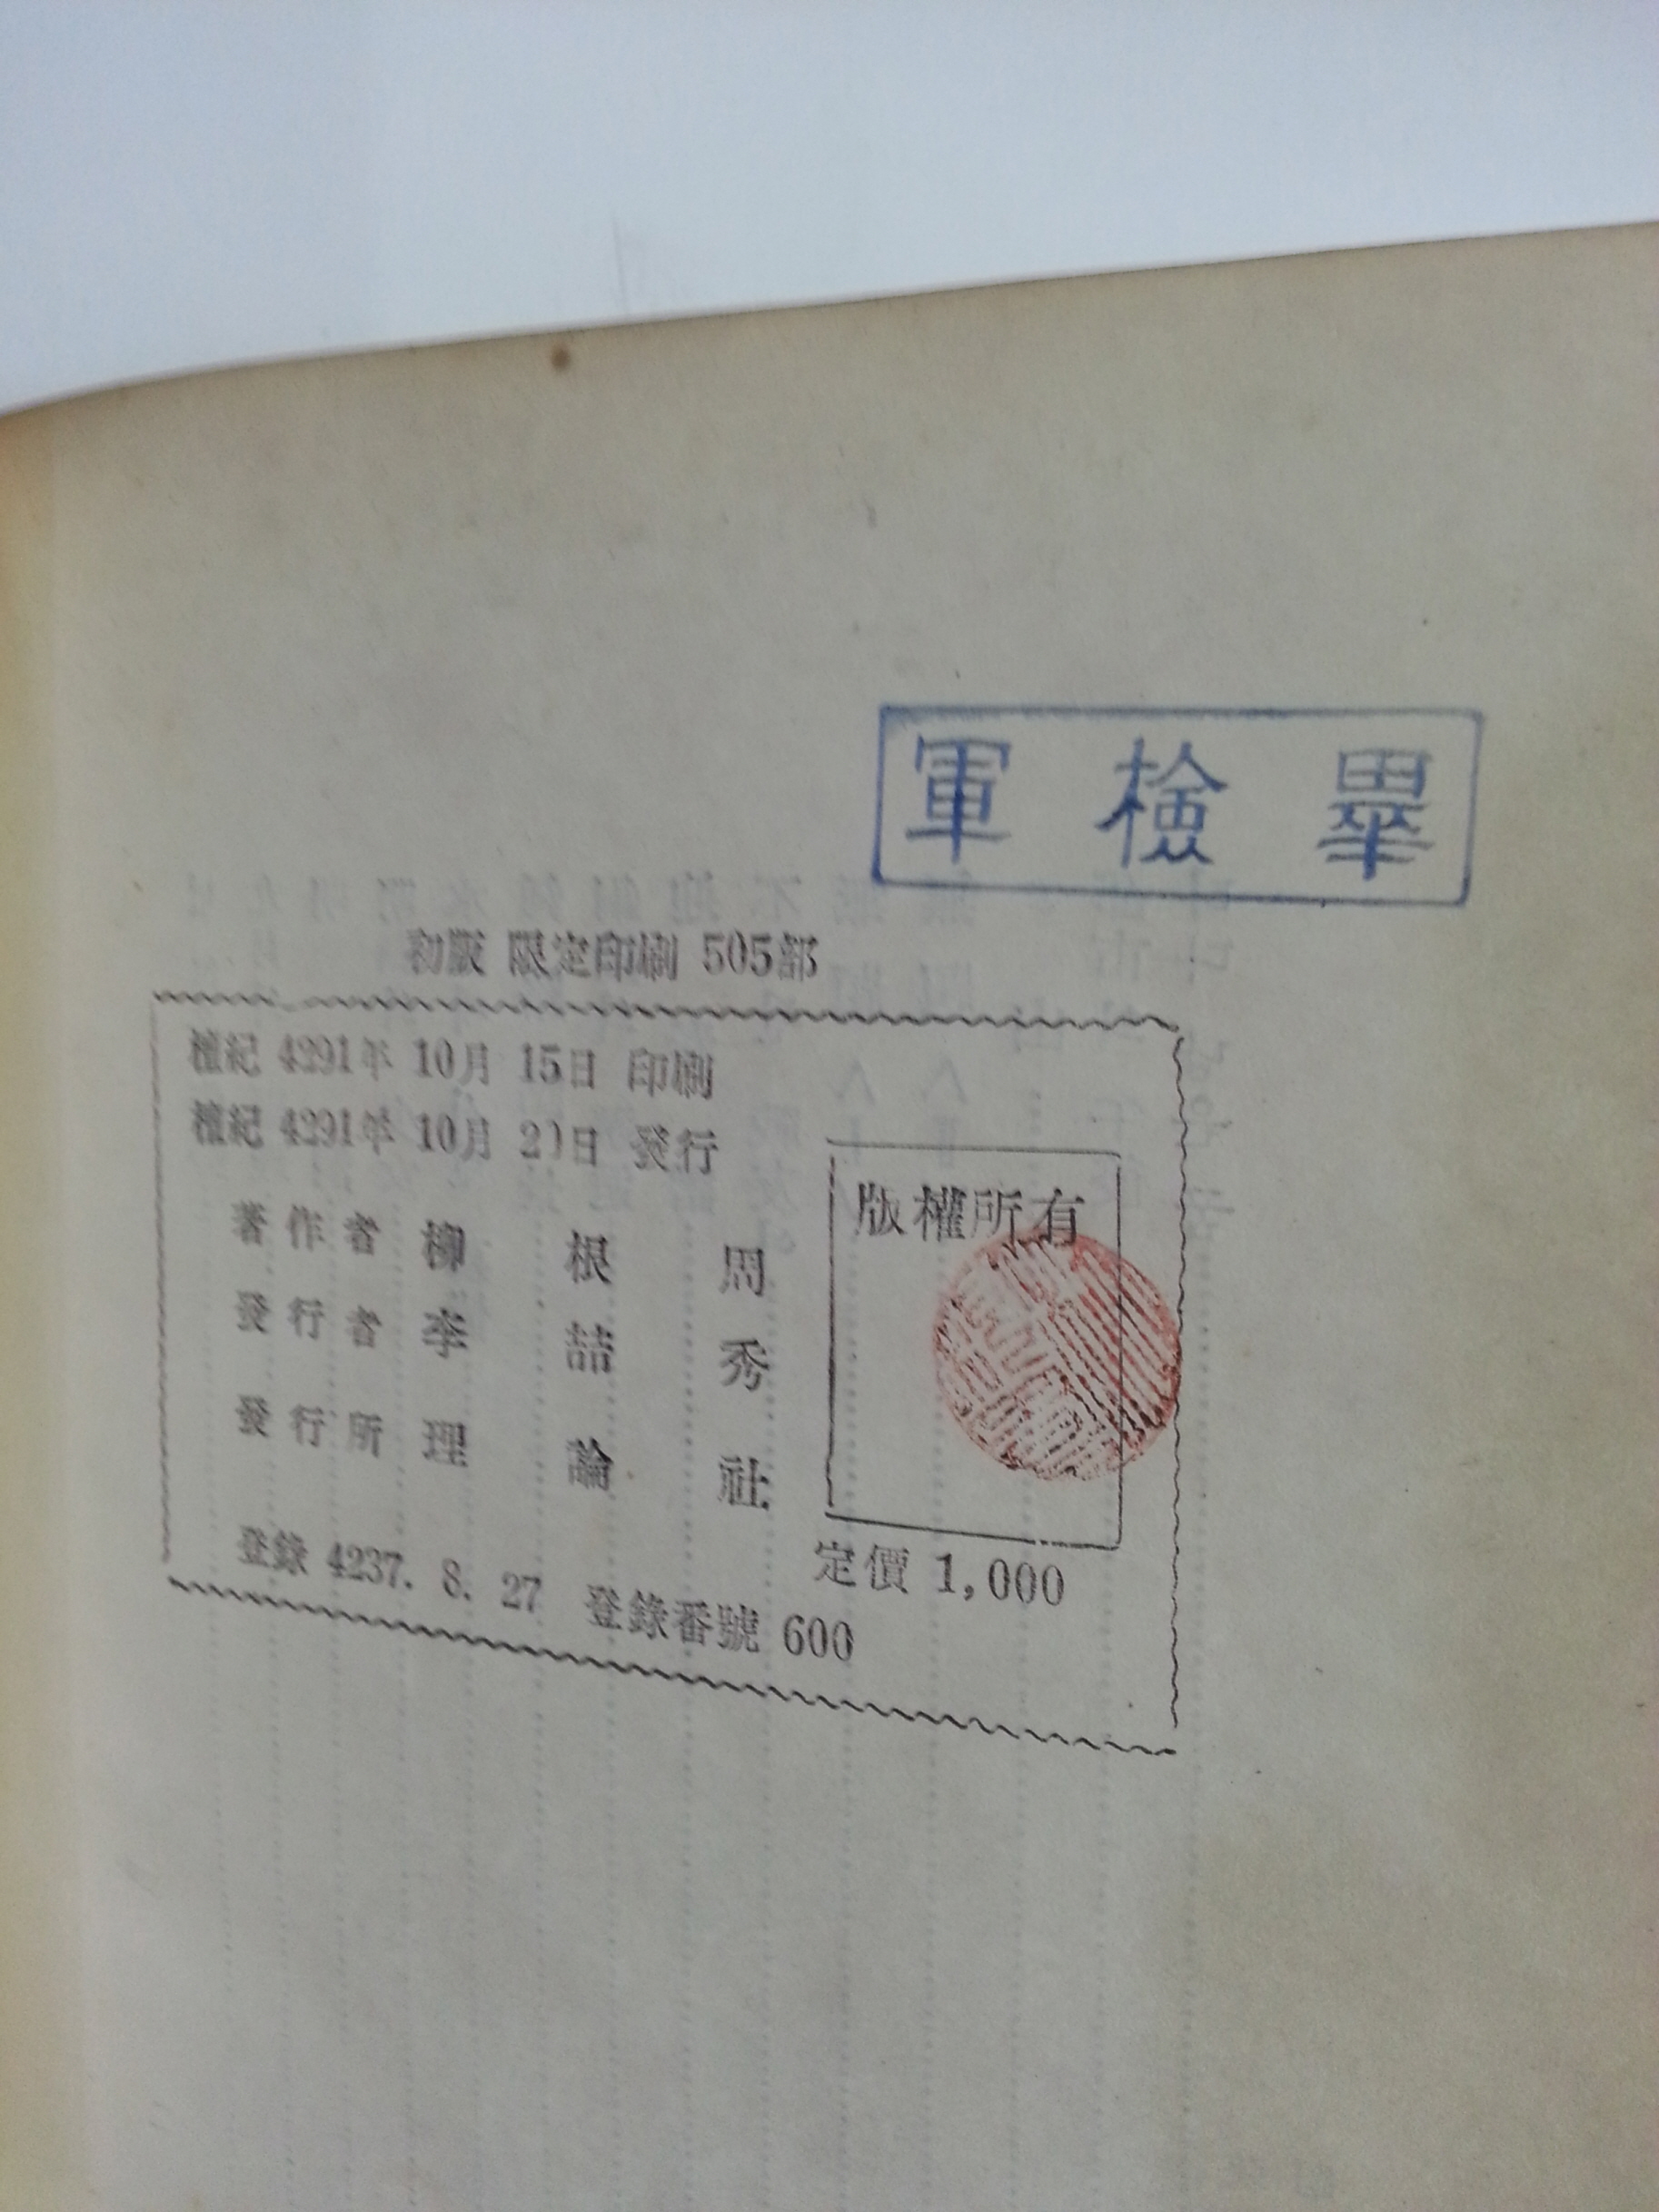 軍檢畢
初版 限定印刷 505部
檀紀 4291年 10月 15日 印刷
檀紀 4291年 10月 20日 發行
版權所有
著作者 柳根周
發行者 李喆秀
發行所 理論社
定價 1,000
登錄 4237. 8. 27 登錄番號 600